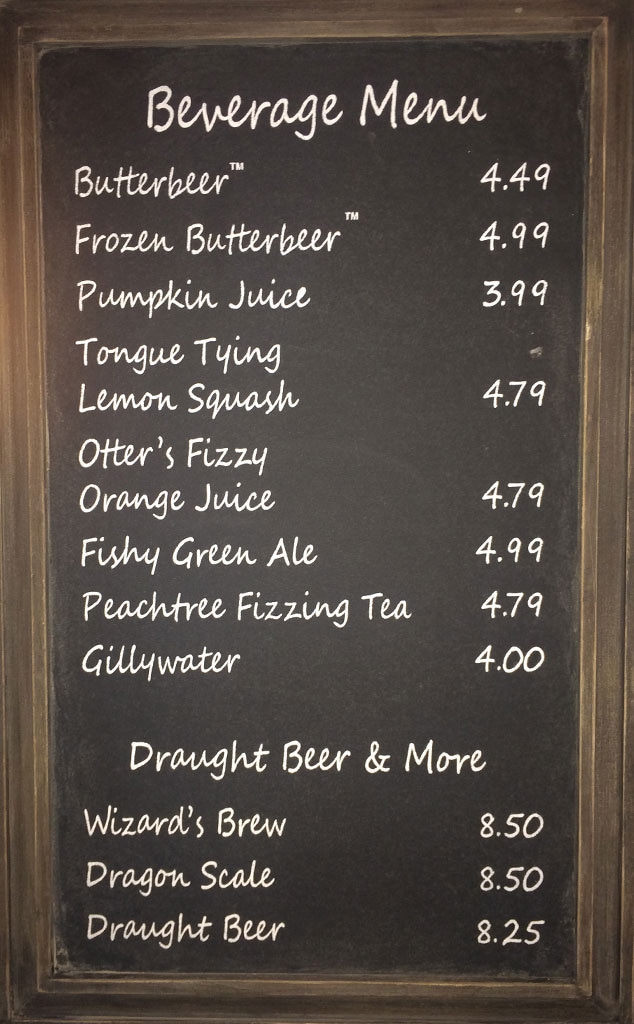 Beverage Menu
Butterbeer™ 4.49
Frozen Butterbeer™ 4.99
Pumpkin Juice 3.99
Tongue Tying
Lemon Squash 4.79
Otter's Fizzy
Orange Juice 4.79
Fishy Green Ale 4.99
Peachtree Fizzing Tea 4.79
Gillywater 4.00
Draught Beer & More
Wizard's Brew 8.50
Dragon Scale 8.50
Draught Beer 8.25